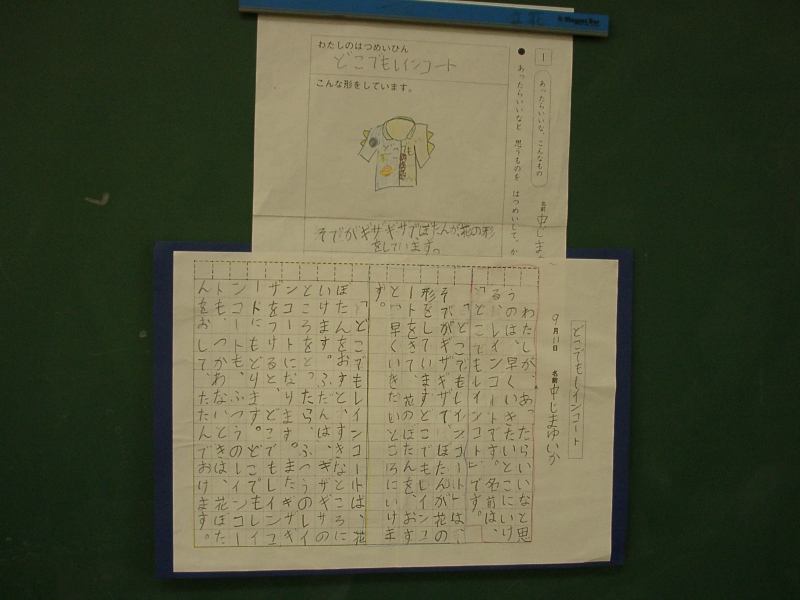 1
あったらいいな、こんなもの
●あったらいいなと 思うものを はつめいして、か
名前
中じまゆ
わたしのはつめいひん
どこでもレインコート
こんな形をしています。
そでがギザギザで、ぼたんが、花の形
をしています。
どこでもレインコート
9月11日 名前 中じまゆいか
わたしが、あったらいいなと思
うのは、早くいきたいとこにいけ
る、レインコートです。名前は、
「どこでもレインコート」です。
「どこでもレインコート」は、
そでがギザギザで、ぼたんが花の
形をしていますどこでもレインコ
ートをきて、花のぼたんを、おす
と、早くいきたいところにいけま
す。
「どこでもレインコートは、花
ぼたんをおすと、すきなところに
いけます。ふだんは、ギザギザの
ところをとったら、ふつうのレイ
ンコートになります。またギザギ
ザをつけると、どこでもレインコ
ードにもどります。どこでもレイ
ンコートも、ふつうのレインコー
トも、つかわないときは、花ぼた
んをおして、たたんでおけます。